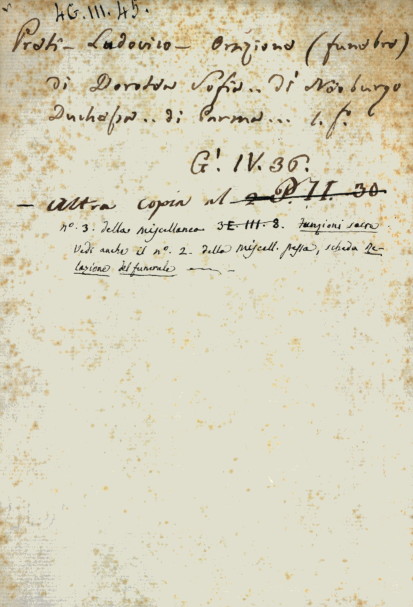 4G.III.45.
Prati - Ludovico - Orazione (funebre)
di Dorotea Sofia .. di Neoburgo
Duchessa .. di Parma ... 
G'. IV. 36.
- Altra copia al 2 P. II. 30
n.º 3. della Miscellanea 3E.III.8. Funzioni sacre.
Vedi anche il n.º 2. della Miscell. stessa, scheda Re-
lazione del funerale